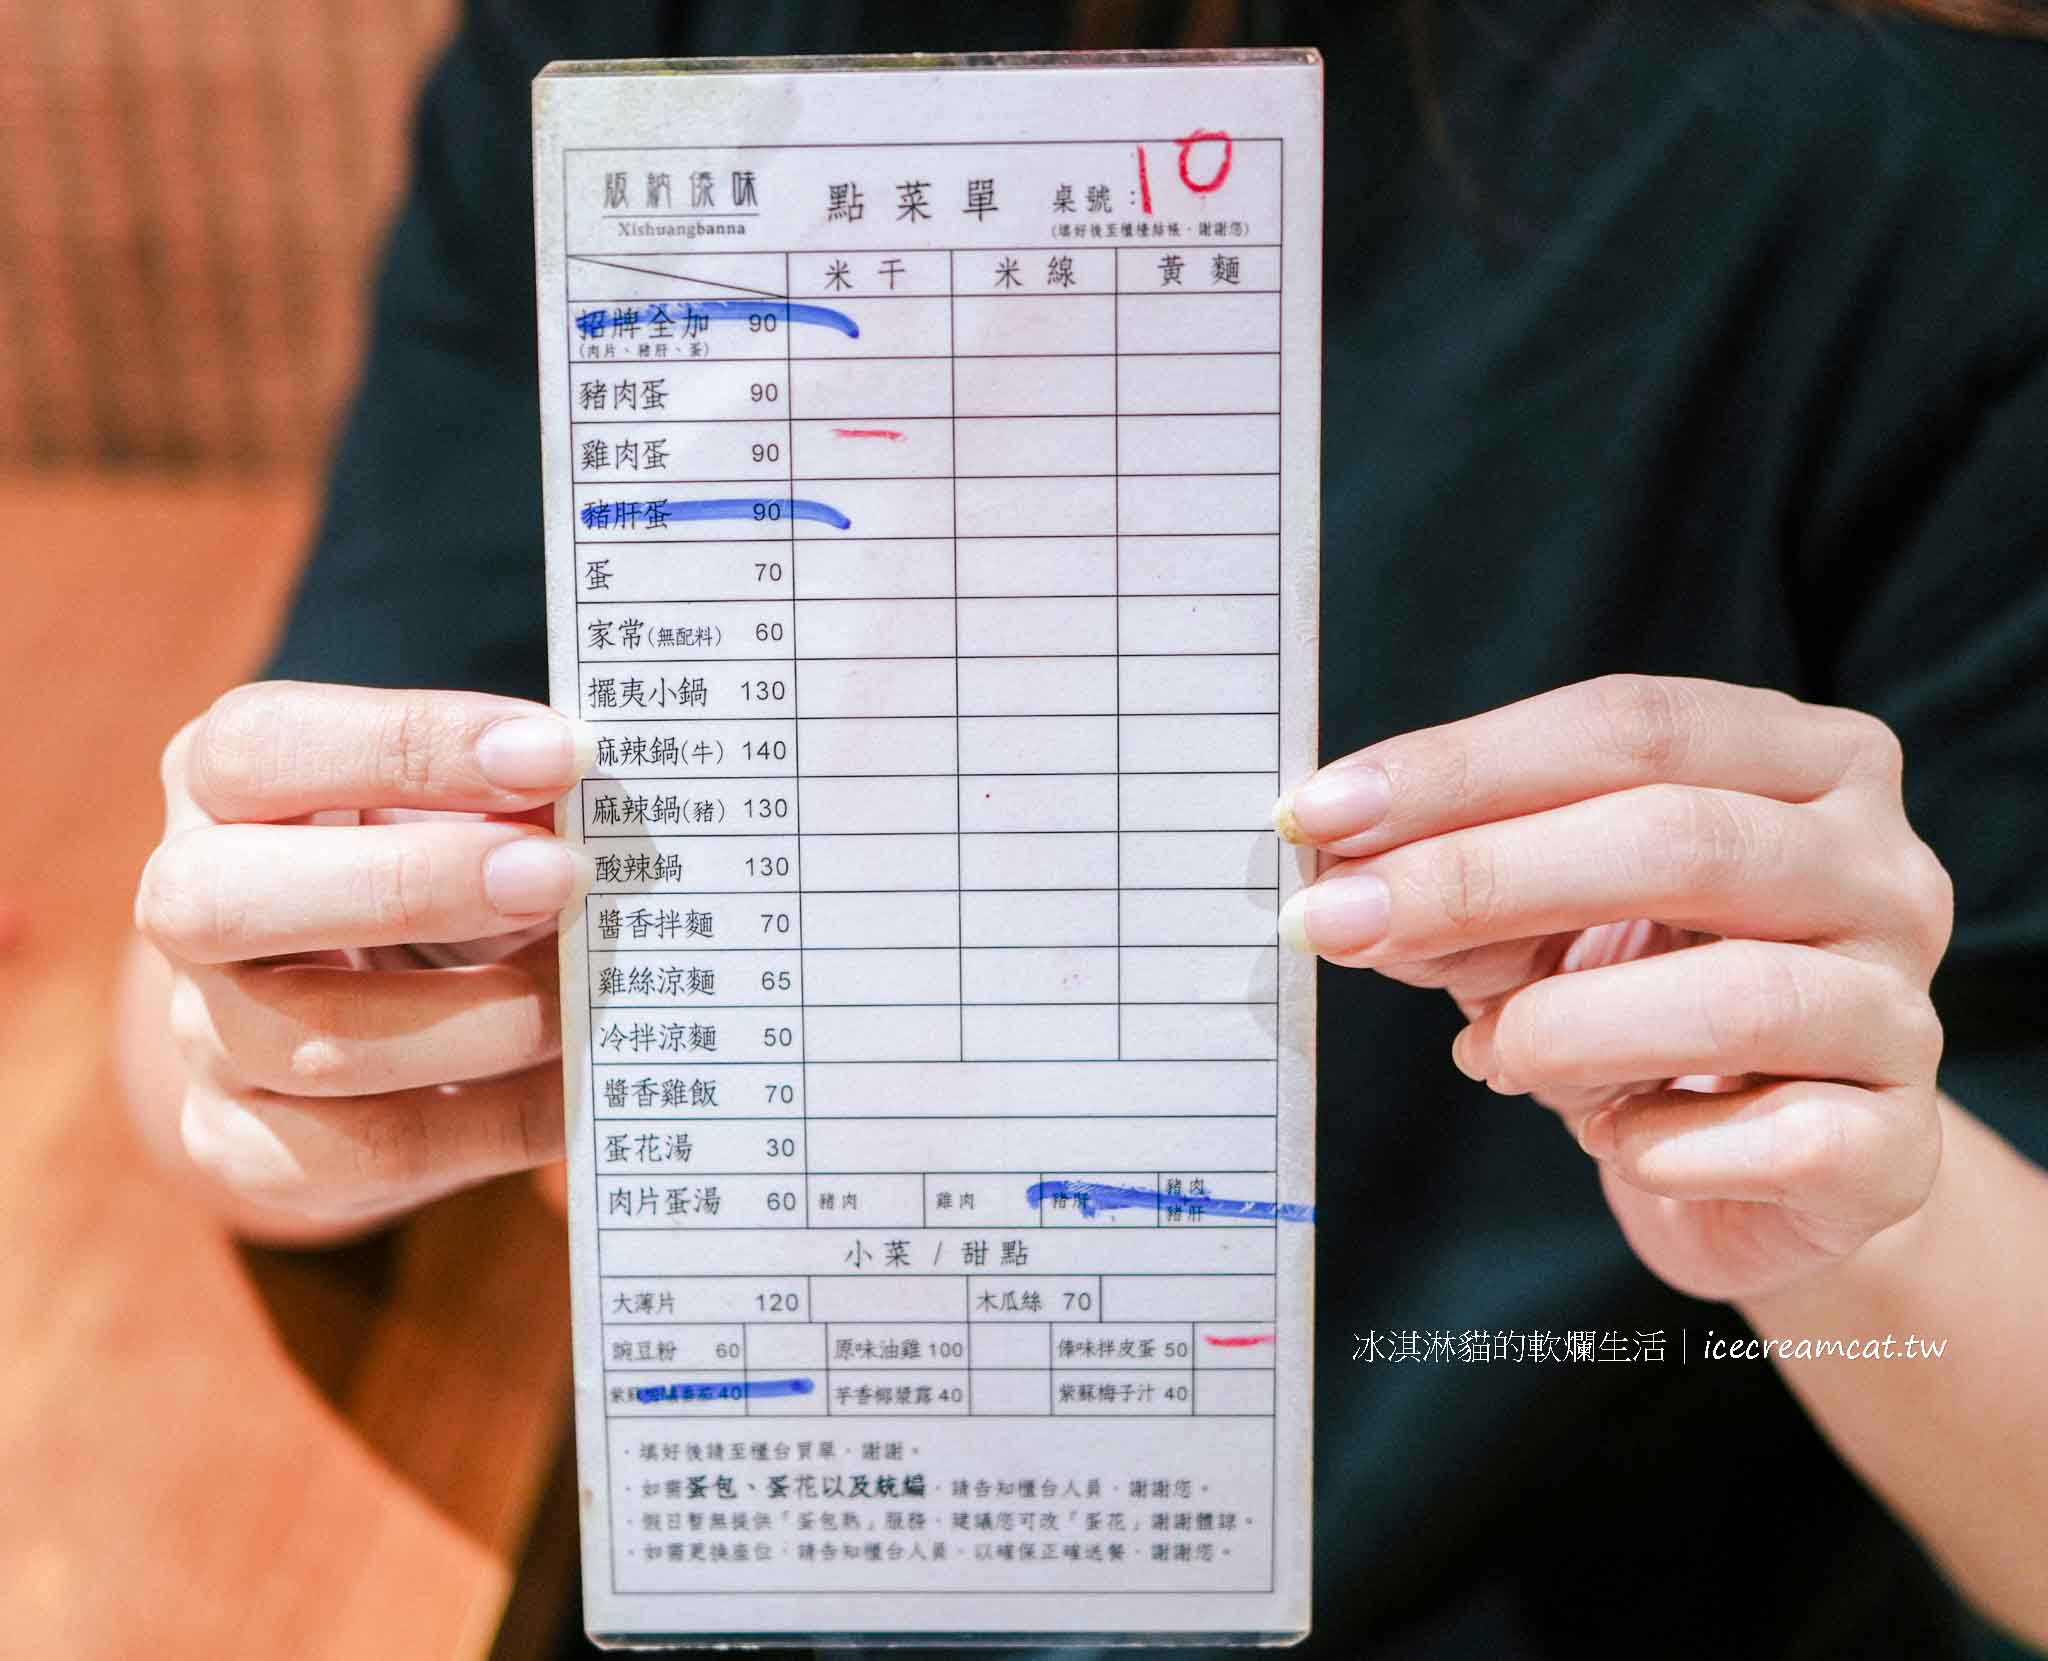 版納傣味 點菜單 桌號：10
Xishuangbanna (填好後至櫃檯結帳，謝謝您)
米干 米線 黃麵
招牌全加 90
(肉片、豬肝、蛋)
豬肉蛋 90
雞肉蛋 90
豬肝蛋 90
蛋 70
家常(無配料) 60
擺夷小鍋 130
麻辣鍋(牛) 140
麻辣鍋(豬) 130
酸辣鍋 130
醬香拌麵 70
雞絲涼麵 65
冷拌涼麵 50
醬香雞飯 70
蛋花湯 30
肉片蛋湯 60 豬肉 雞肉 豬肝 豬肉+豬肝
小菜/甜點
大薄片 120 木瓜絲 70
豌豆粉 60 原味油雞 100 傣味拌皮蛋 50
紫蘇 40 芋香椰漿露 40 紫蘇梅子汁 40
·填好後請至櫃台買單，謝謝。
·如需蛋包、蛋花以及統編，請告知櫃台人員，謝謝您。
·假日暫無提供「蛋包熟」服務，建議您可改「蛋花」謝謝體諒。
·如需更換座位，請告知櫃台人員，以確保正確送餐，謝謝您。
冰淇淋貓的軟爛生活｜icecreamcat.tw